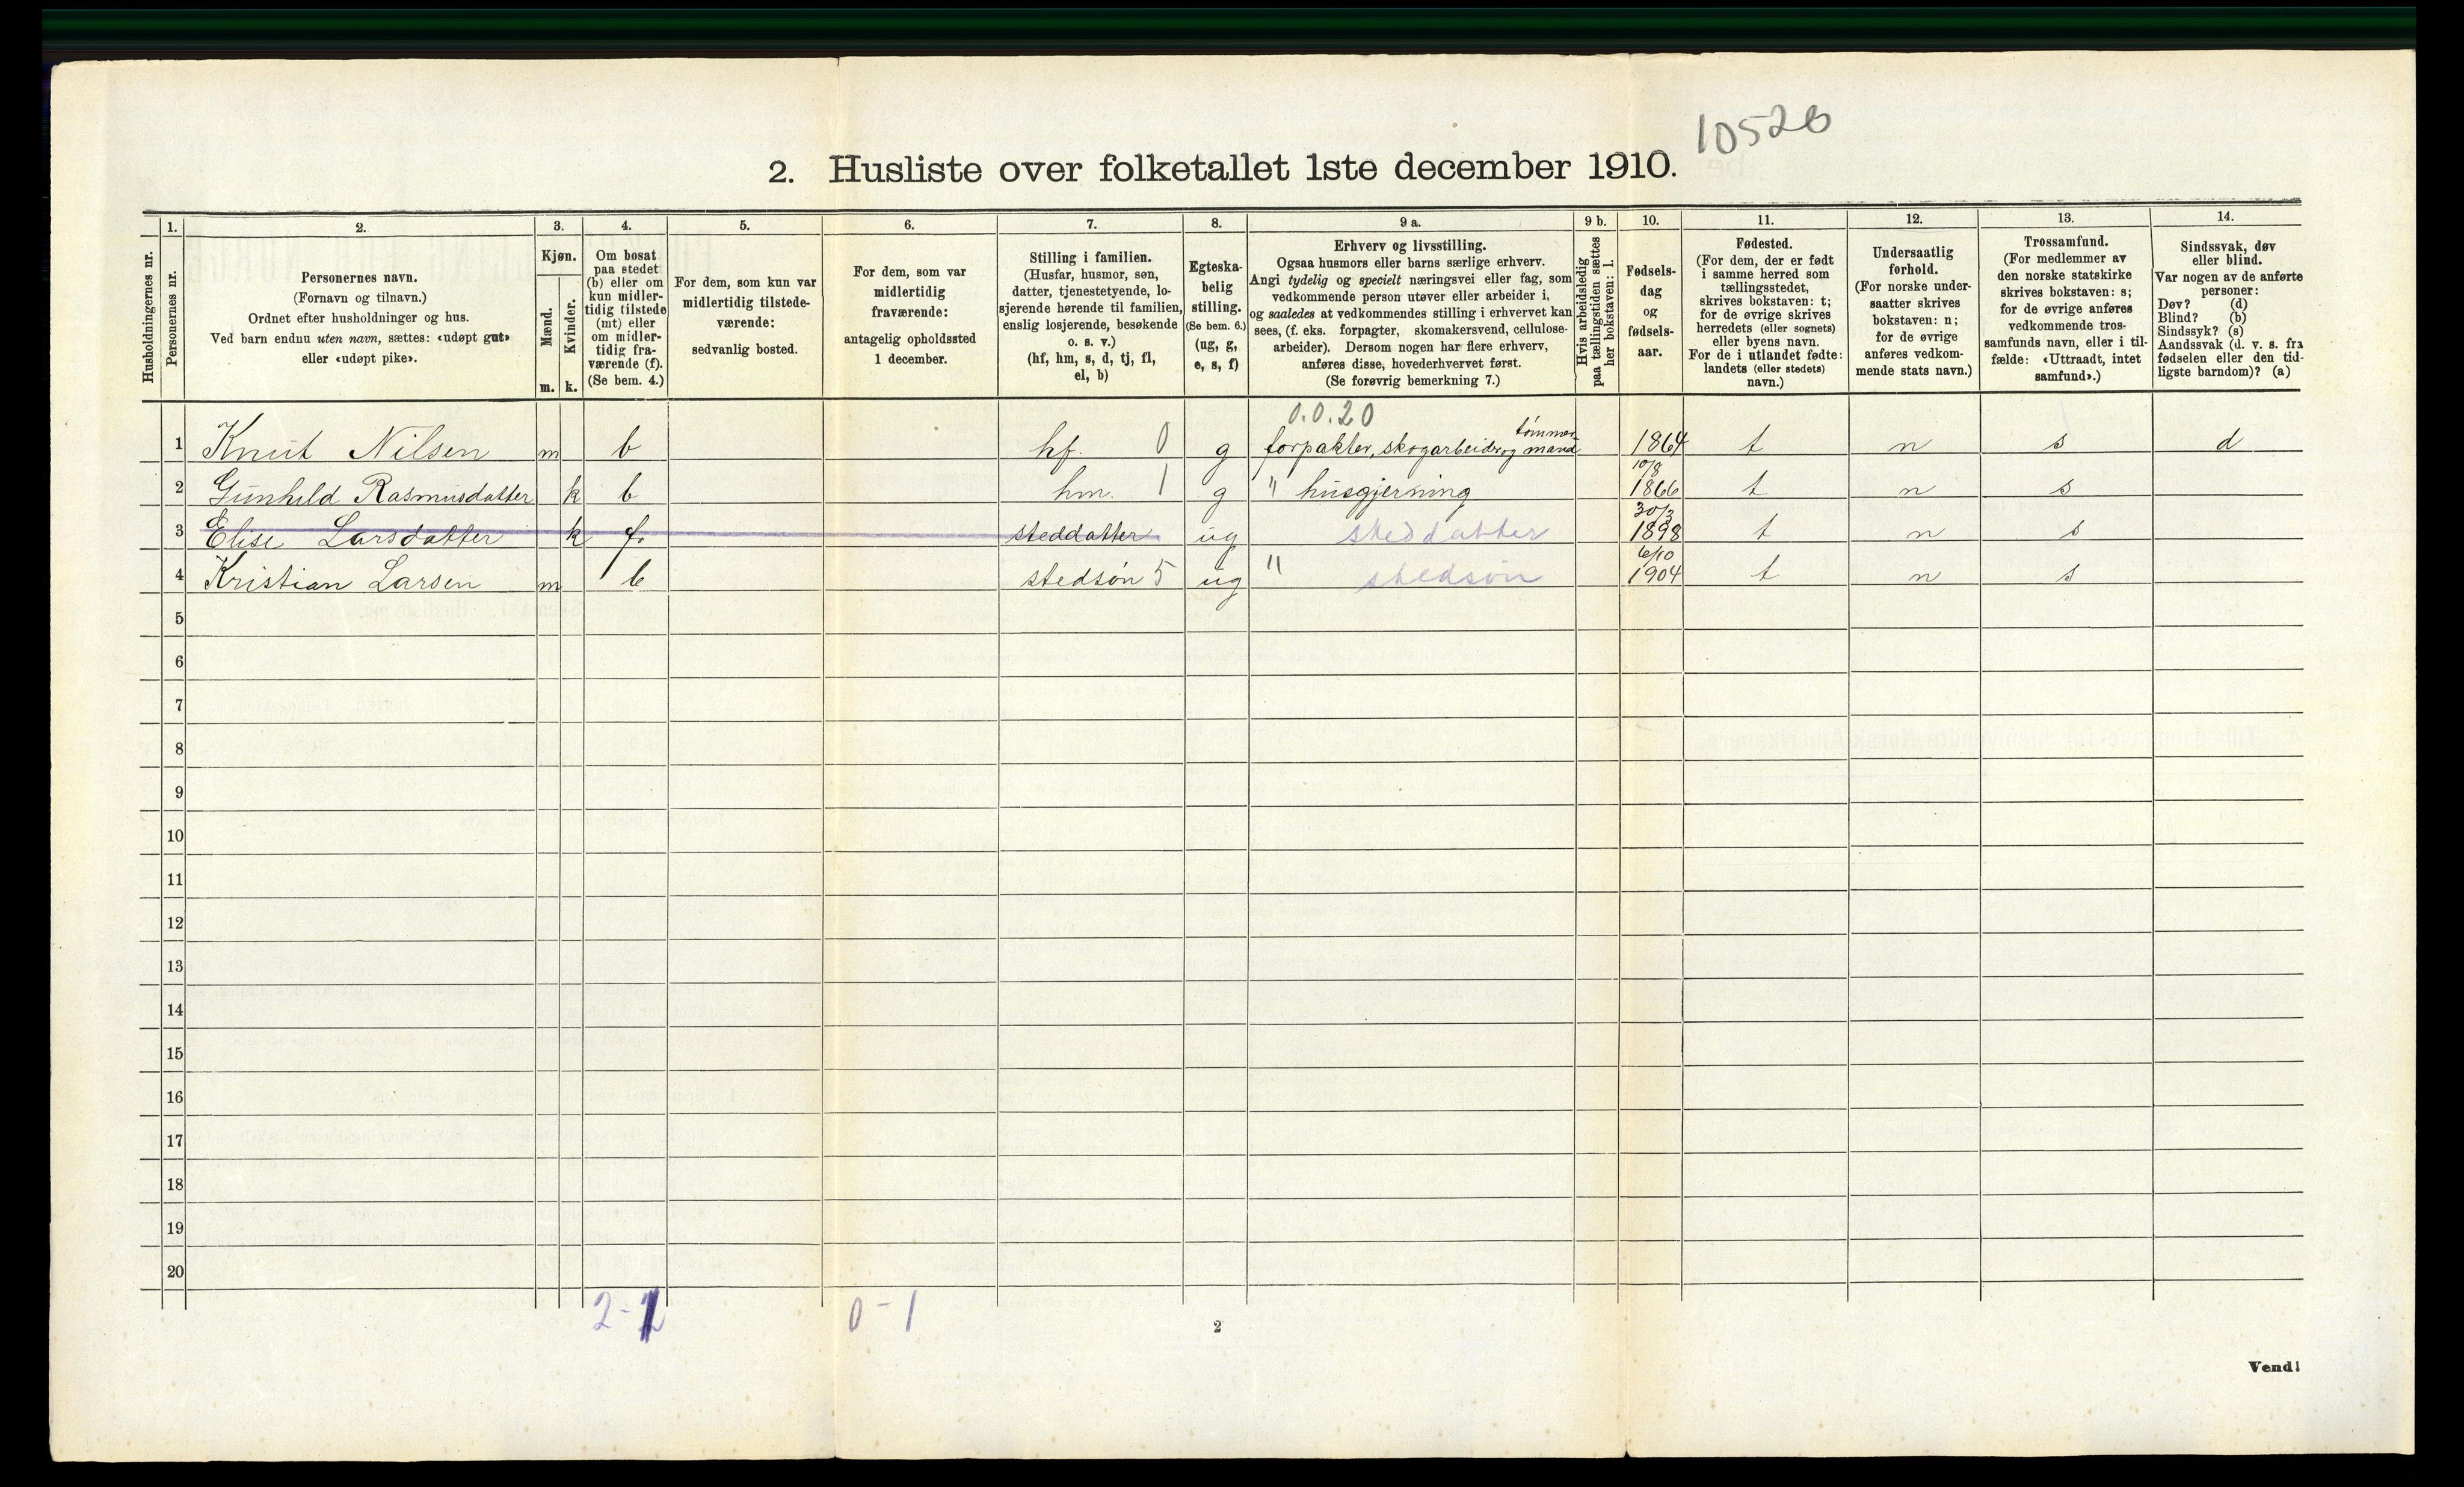 10526
2. Husliste over folketallet 1ste december 1910.
Husholdningernes nr.
1.
Personernes nr.
2.
Personernes navn.
(Fornavn og tilnavn.)
Ordnet efter husholdninger og hus.
Ved barn endnu uten navn, sættes: «udøpt gut»
eller «udøpt pike».
3.
Kjøn.
Mænd.
m.
Kvinder.
k.
4.
Om bosat
paa stedet
(b) eller om
kun midler-
tidig tilstede
(mt) eller
om midler-
tidig fra-
værende (f).
(Se bem. 4.)
5.
For dem, som kun var
midlertidig tilstede-
værende:
sedvanlig bosted.
6.
For dem, som var
midlertidig
fraværende:
antagelig opholdssted
1 december.
7.
Stilling i familien.
(Husfar, husmor, søn,
datter, tjenestetyende, lo-
sjerende hørende til familien,
enslig losjerende, besøkende
o. s. v.)
(hf, hm, s, d, tj, fl,
el, b)
8.
Egteska-
belig
stilling.
(Se bem. 6.)
(ug, g,
e, s, f)
9 a.
Erhverv og livsstilling.
Ogsaa husmors eller barns særlige erhverv.
Angi tydelig og specielt næringsvei eller fag, som
vedkommende person utøver eller arbeider i,
og saaledes at vedkommendes stilling i erhvervet kan
sees, (f. eks. forpagter, skomakersvend, cellulose-
arbeider). Dersom nogen har flere erhverv,
anføres disse, hovederhvervet først.
(Se forøvrig bemerkning 7.)
9 b.
Hvis arbeidsledig
paa tællingstiden sættes
her bokstaven: l.
10.
Fødsels-
dag
og
fødsels-
aar.
11.
Fødested.
(For dem, der er født
i samme herred som
tællingsstedet,
skrives bokstaven: t;
for de øvrige skrives
herredets (eller sognets)
eller byens navn.
For de i utlandet fødte:
landets (eller stedets)
navn.)
12.
Undersaatlig
forhold.
(For norske under-
saatter skrives
bokstaven: n;
for de øvrige
anføres vedkom-
mende stats navn.)
13.
Trossamfund.
(For medlemmer av
den norske statskirke
skrives bokstaven: s;
for de øvrige anføres
vedkommende tros-
samfunds navn, eller i til-
fælde: «Uttraadt, intet
samfund».)
14.
Sindssvak, døv
eller blind.
Var nogen av de anførte
personer:
Døv? (d)
Blind? (b)
Sindssyk? (s)
Aandssvak (d. v. s. fra
fødselen eller den tid-
ligste barndom)? (a)
0.0.20
1 Knut Nilsen m b hf. 0 g forpakter, skogarbeider og tømmermand 1864 t n s d
2 Gunhild Rasmusdatter k b hm. 1 g " husgjerning 10/8 1866 t n s
3 Elise Larsdatter k f. steddatter ug steddatter 30/3 1898 t n s
4 Kristian Larsen m b stedsøn 5 ug " stedsøn 6/10 1904 t n s
5
6
7
8
9
10
11
12
13
14
15
16
17
18
19
20
2-1 0-1
2
Vend!